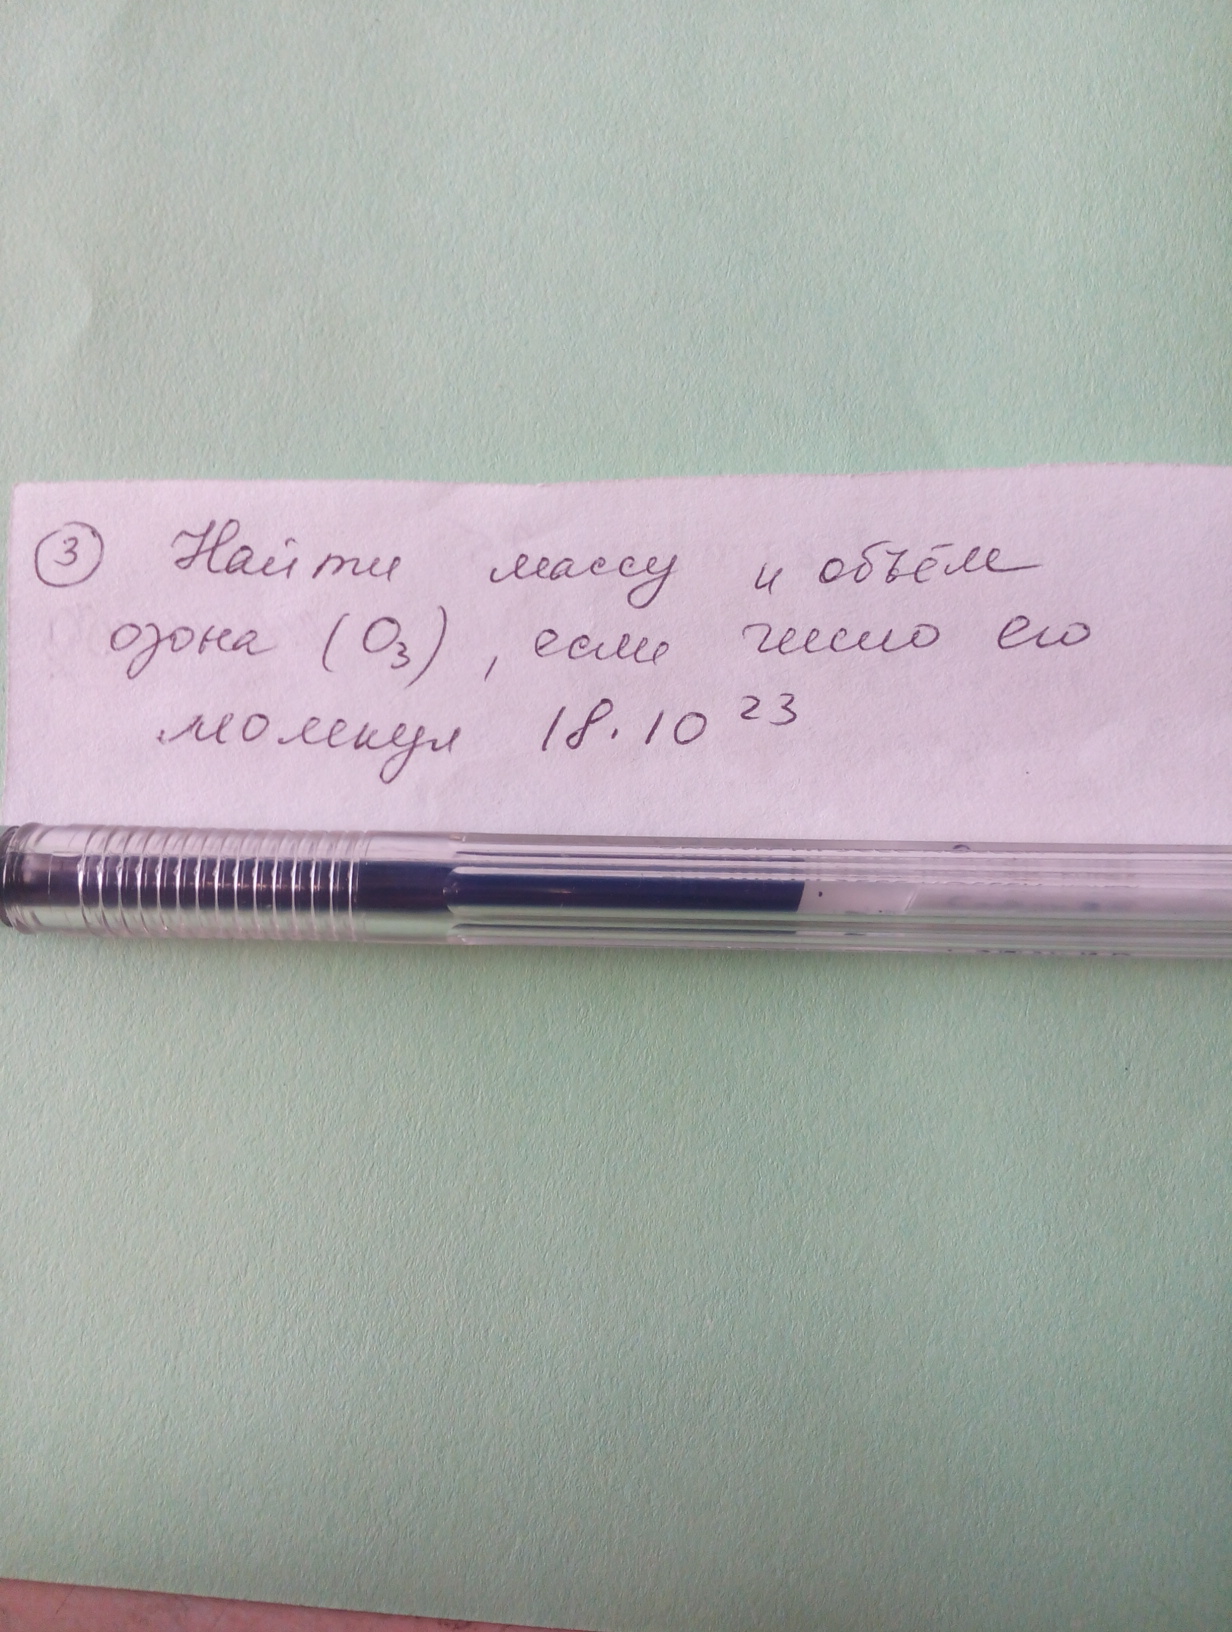 3 Найти массу и объём
озона (O₃), если число его
молекул 18·10²³